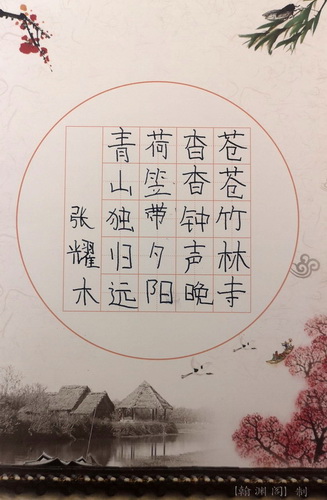 苍苍竹林寺
杳杳钟声晚
荷笠带夕阳
青山独归远
张耀木
[翰渊阁] 制